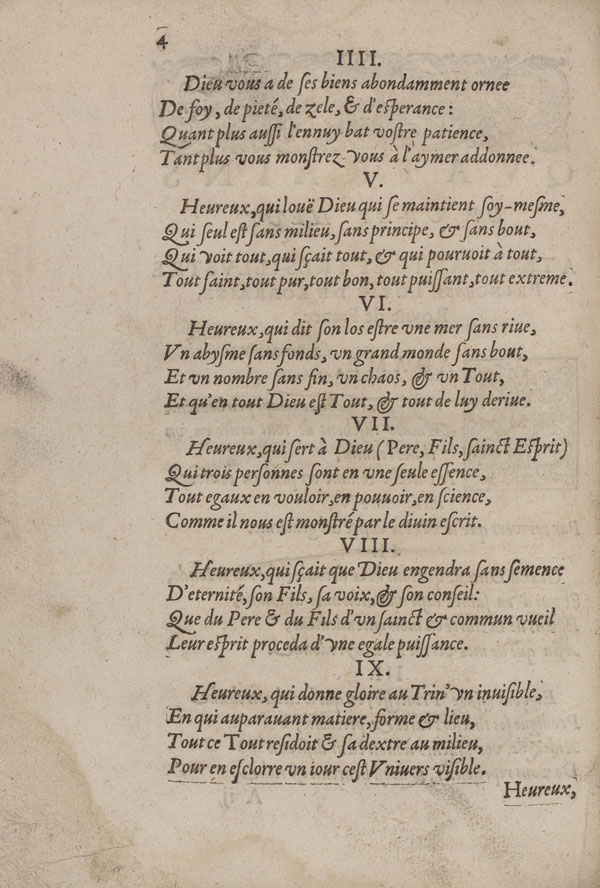 4
IIII.
Dieu vous a de ses biens abondamment ornee
De foy, de pieté, de zele, & d'esperance:
Quant plus aussi l'ennuy bat vostre patience,
Tant plus vous monstrez vous à l'aymer addonnee.
V.
Heureux, qui louë Dieu qui se maintient soy-mesme,
Qui seul est sans milieu, sans principe, & sans bout,
Qui voit tout, qui sçait tout, & qui pouruoit à tout,
Tout saint, tout pur, tout bon, tout puissant, tout extreme.
VI.
Heureux, qui dit son los estre vne mer sans riue,
Vn abysme sans fonds, vn grand monde sans bout,
Et vn nombre sans fin, vn chaos, & vn Tout,
Et qu'en tout Dieu est Tout, & tout de luy deriue.
VII.
Heureux, qui sert à Dieu (Pere, Fils, sainct Esprit)
Qui trois personnes sont en vne seule essence,
Tout egaux en vouloir, en pouuoir, en science,
Comme il nous est monstré par le diuin escrit.
VIII.
Heureux, qui sçait que Dieu engendra sans semence
D'eternité, son Fils, sa voix, & son conseil:
Que du Pere & du Fils d'vn sainct & commun vueil
Leur esprit proceda d'vne egale puissance.
IX.
Heureux, qui donne gloire au Trin'vn inuisible,
En qui auparauant matiere, forme & lieu,
Tout ce Tout residoit & sa dextre au milieu,
Pour en esclorre vn iour cest Vniuers visible.
Heureux,